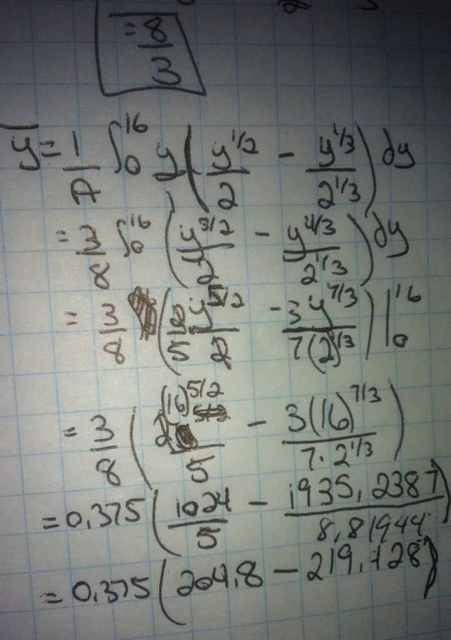 = 8/3
ȳ = 1/A ∫₀¹⁶ y (y^{1/2}/2 − y^{1/3}/2^{1/3}) dy
= 3/8 ∫₀¹⁶ (y^{3/2}/2 − y^{4/3}/2^{1/3}) dy
= 3/8 (2/5 y^{5/2}/2 − 3y^{7/3}/7(2)^{1/3}) |₀¹⁶
= 3/8 ((16)^{5/2}/5 − 3(16)^{7/3}/7·2^{1/3})
= 0.375 (1024/5 − 1935,2387/8,81944)
= 0.375 (204.8 − 219,428)